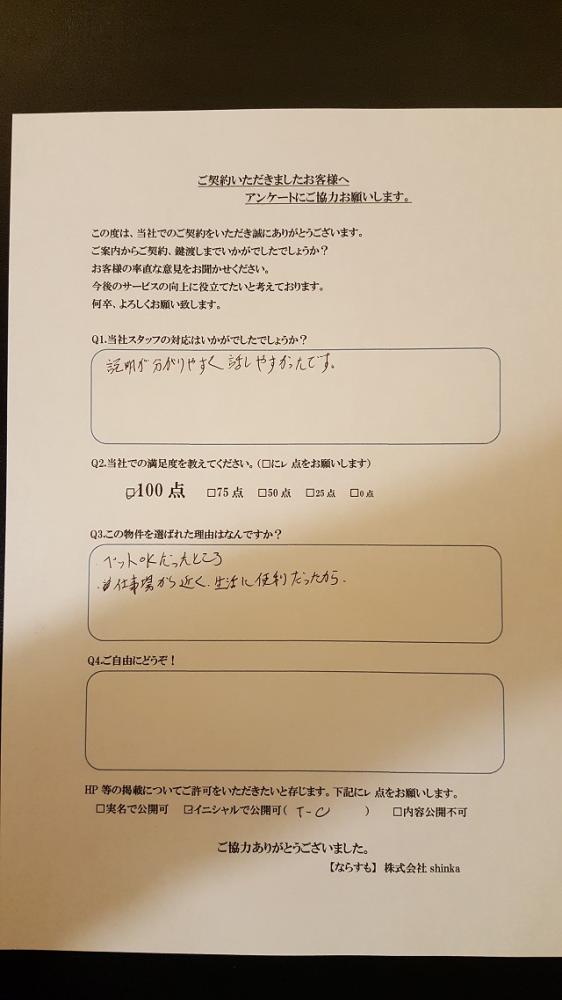 ご契約いただきましたお客様へ
アンケートにご協力お願いします。
この度は、当社でのご契約をいただき誠にありがとうございます。
ご案内からご契約、鍵渡しまでいかがでしたでしょうか？
お客様の率直な意見をお聞かせください。
今後のサービスの向上に役立てたいと考えております。
何卒、よろしくお願い致します。
Q1.当社スタッフの対応はいかがでしたでしょうか？
説明が分かりやすく話しやすかったです。
Q2.当社での満足度を教えてください。（□にㇾ点をお願いします）
☑100 点 □75 点 □50 点 □25 点 □0 点
Q3.この物件を選ばれた理由はなんですか？
・ペットOKだったところ
・仕事場から近く、生活に便利だったから.
Q4.ご自由にどうぞ！
HP 等の掲載についてご許可をいただきたいと存じます。下記にㇾ点をお願いします。
□実名で公開可 ☑イニシャルで公開可( T-C ) □内容公開不可
ご協力ありがとうございました。
【ならすも】 株式会社 shinka